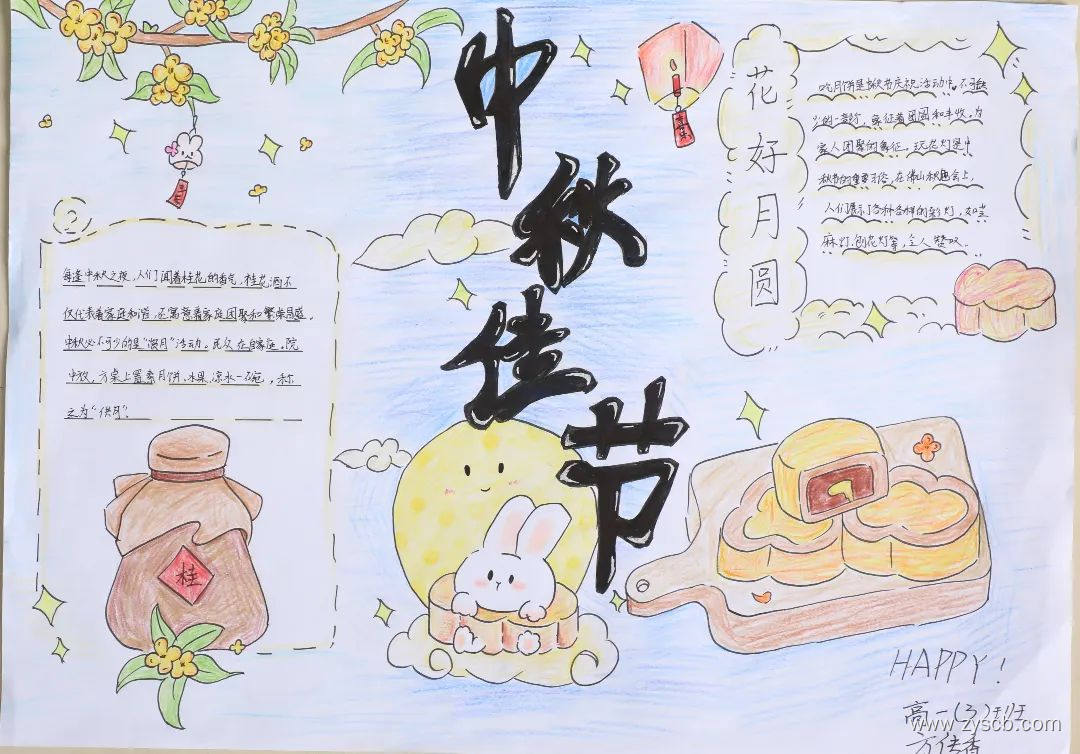 中秋佳节
花好月圆
吃月饼是中秋节庆祝活动中不可缺
少的一部分，象征着团圆和丰收，为
家人团聚的象征。玩花灯是中
秋节的重要习俗，在佛山秋色会上，
人们展示了各种各样的彩灯，如芝
麻灯、刨花灯等，令人赞叹。
每逢中秋之夜，人们闻着桂花的香气，桂花酒不
仅代表着家庭和谐，还寓意着家庭团聚和繁荣昌盛。
中秋必不可少的是“供月”活动。民众在自家庭院
中放，方桌上置素月饼、水果、凉水一碗，称
之为“供月”。
桂
HAPPY!
高一(3)班
www.zyscb.com